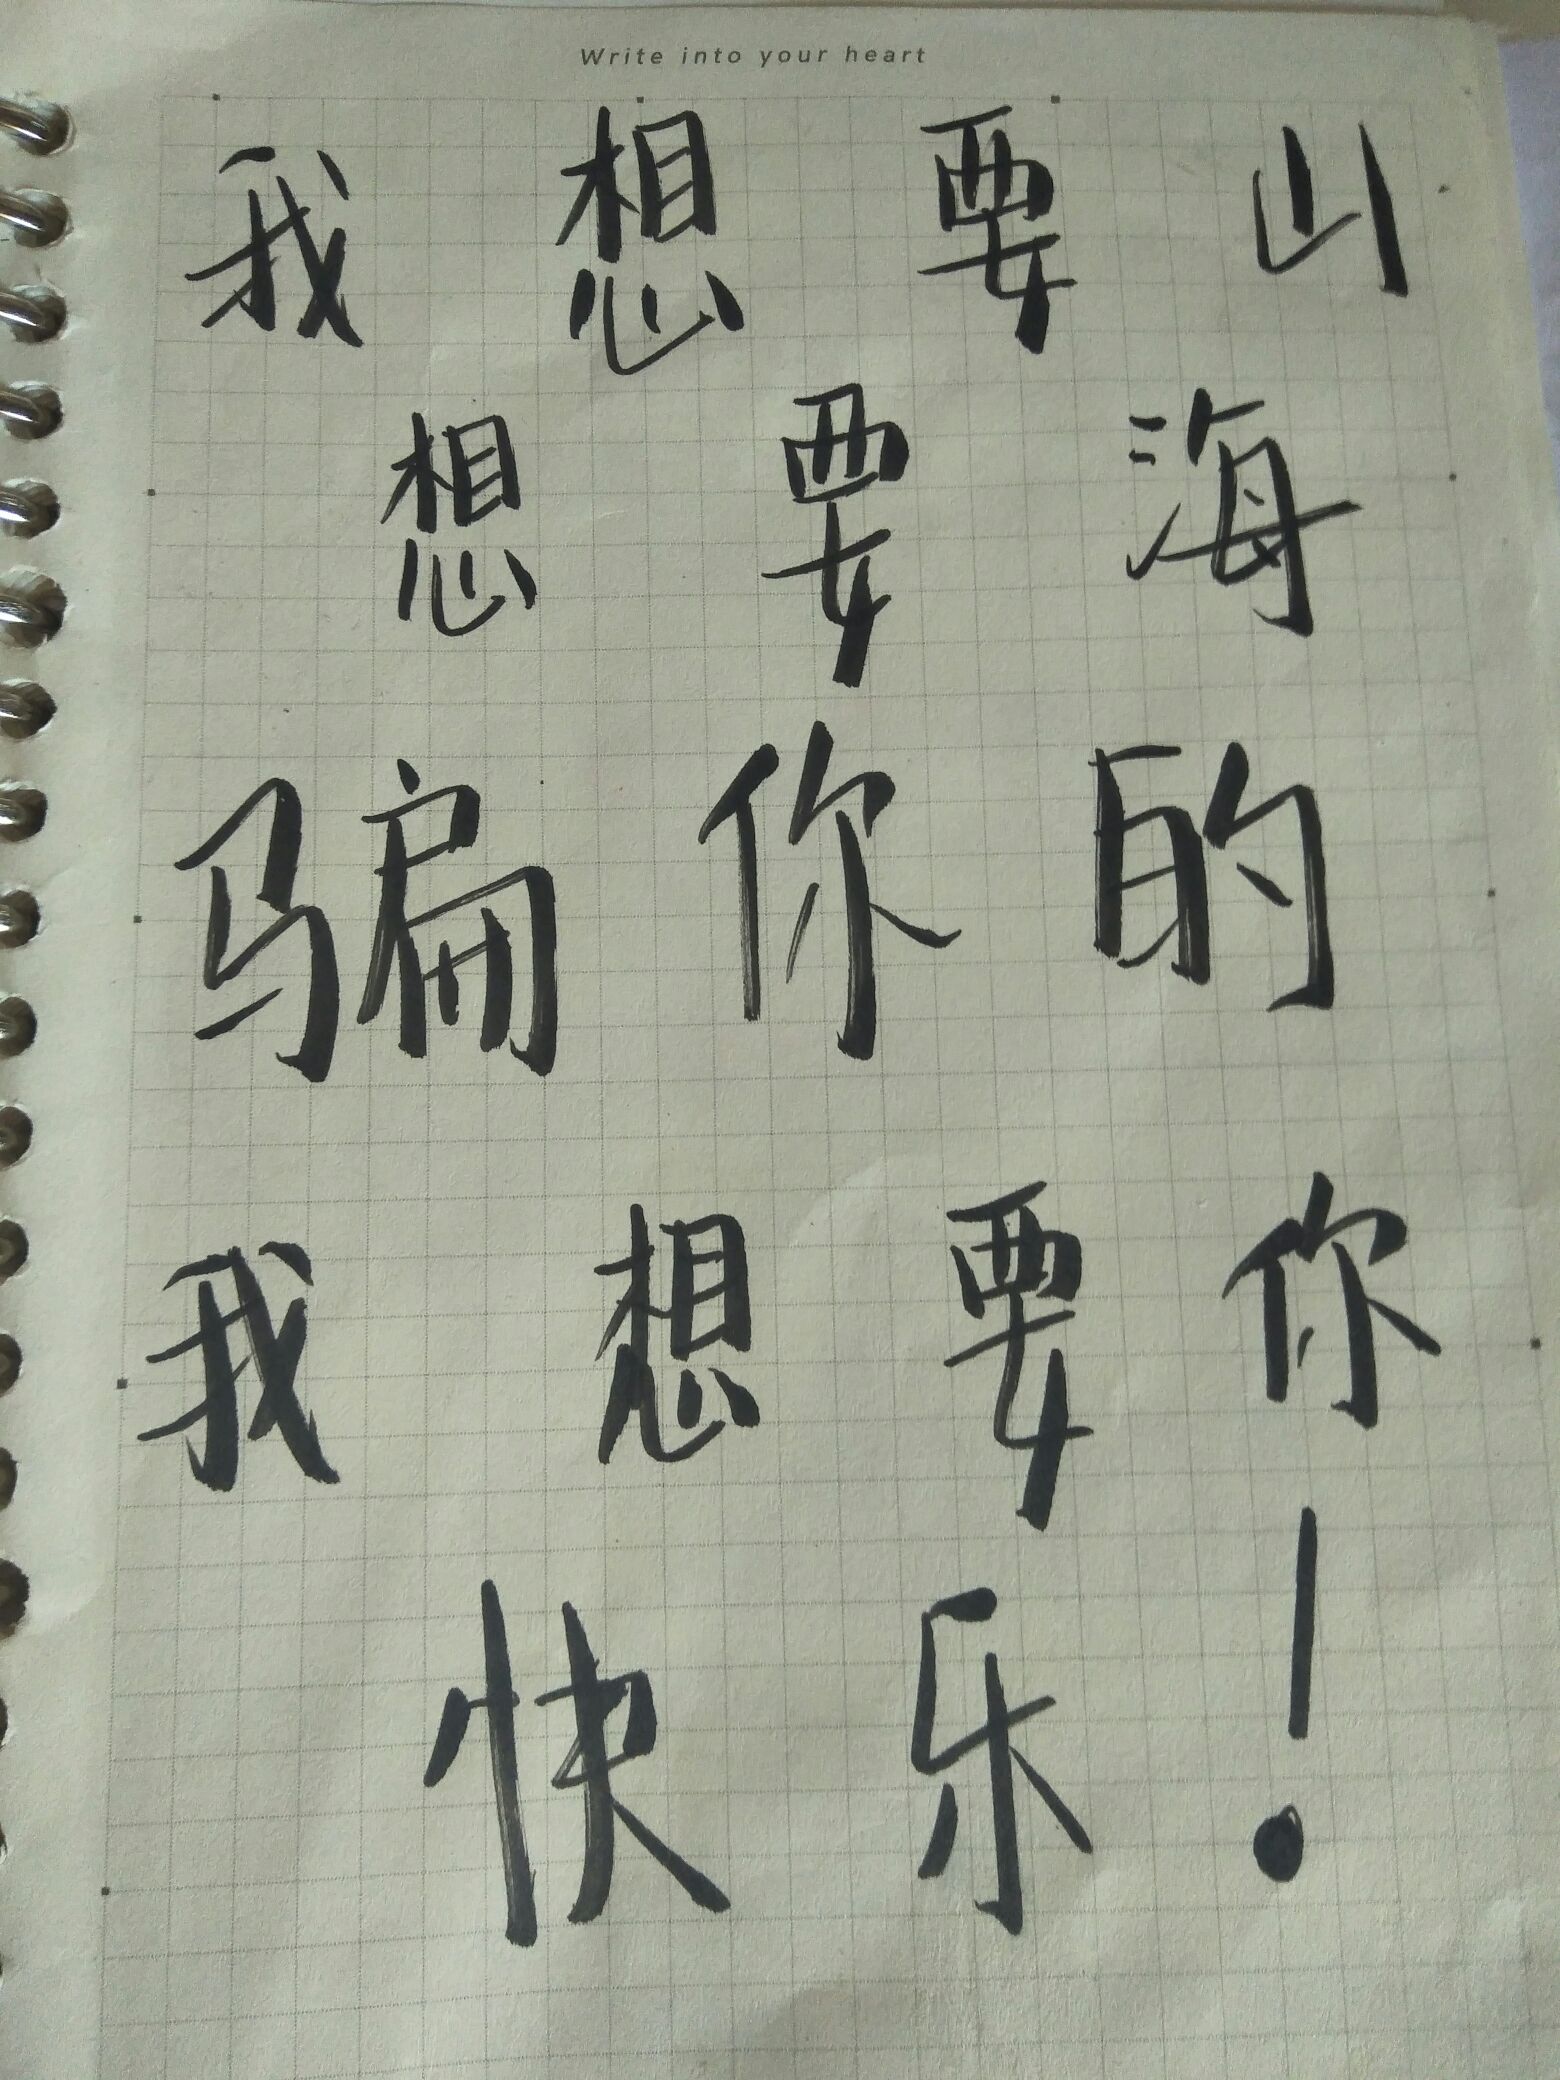 Write into your heart
我想要山
想要海
骗你的
我想要你
快乐！